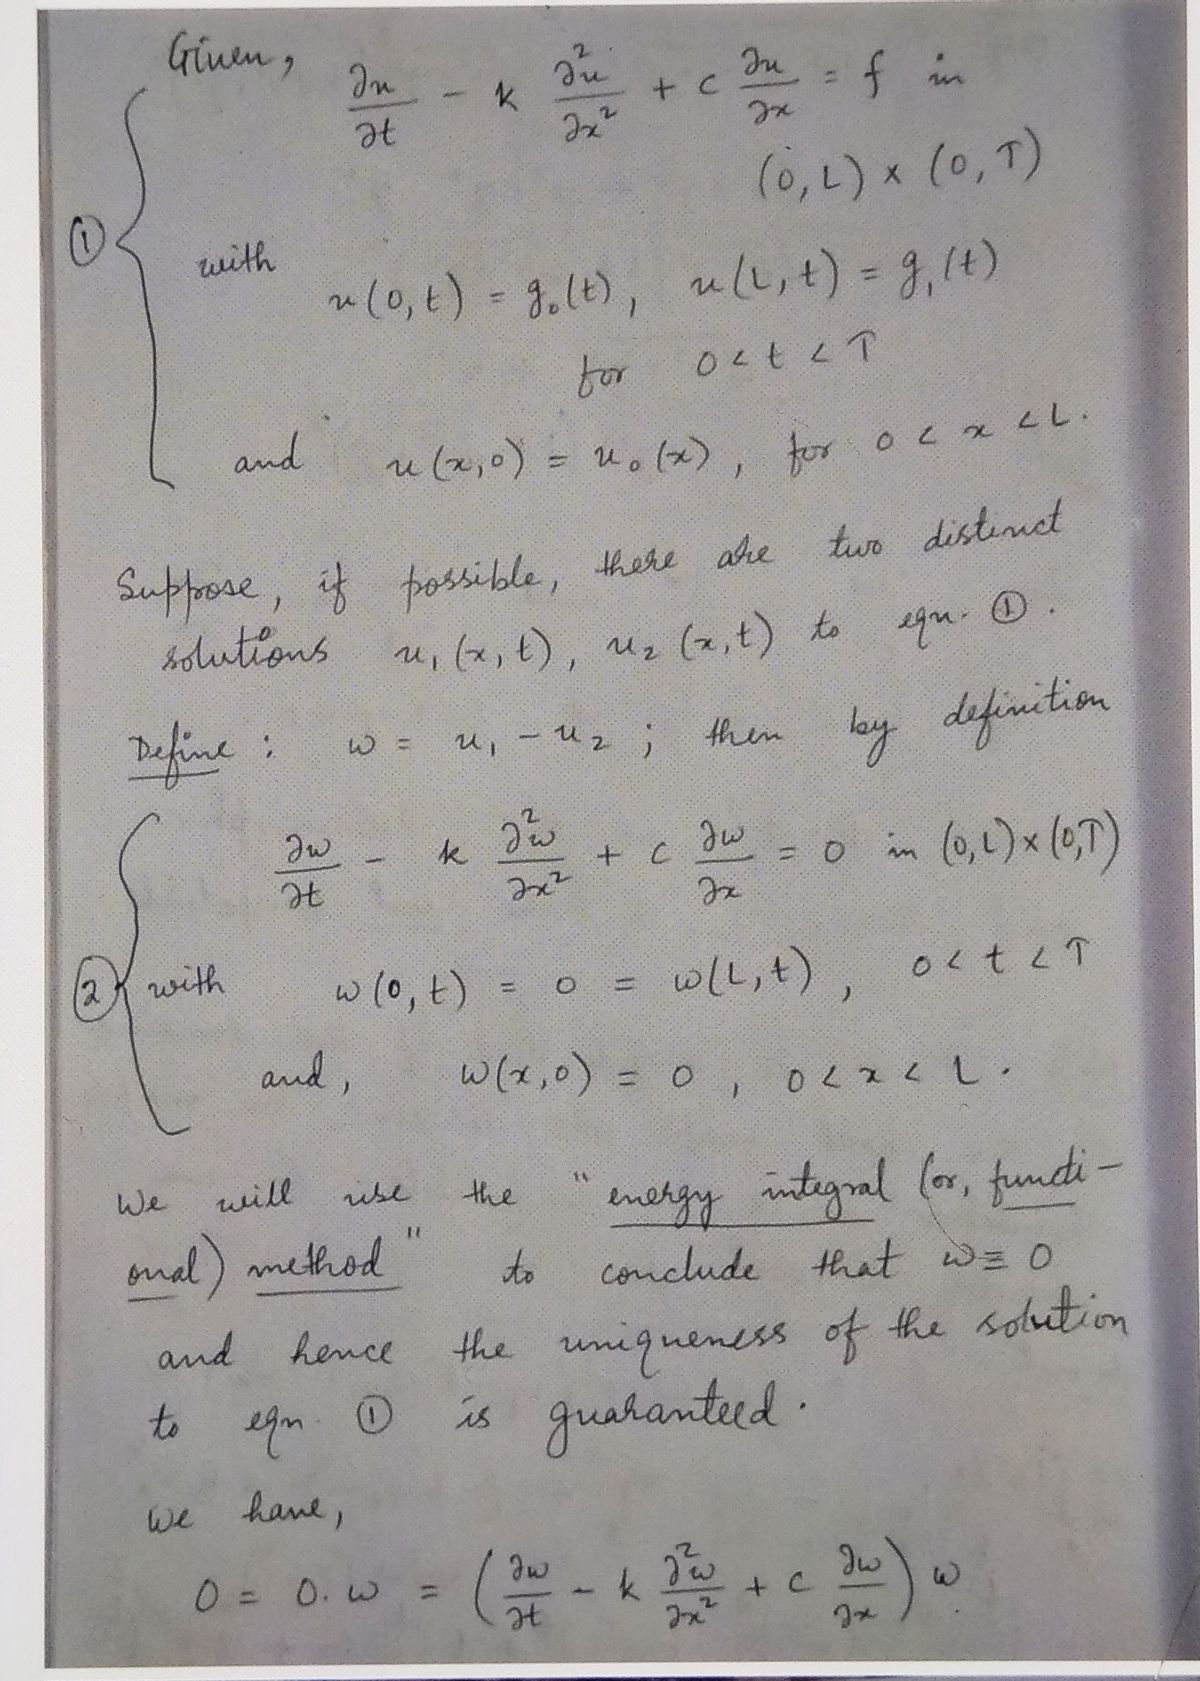 Given,
∂u/∂t - k ∂²u/∂x² + c ∂u/∂x = f in
(0, L) × (0, T)
①
with
u(0, t) = g₀(t), u(L, t) = g₁(t)
for 0 < t < T
and u(x, 0) = u₀(x), for 0 < x < L.
Suppose, if possible, there are two distinct
solutions u₁(x, t), u₂(x, t) to eqn. ①.
Define : w = u₁ - u₂ ; then by definition
∂w/∂t - k ∂²w/∂x² + c ∂w/∂x = 0 in (0, L) × (0, T)
② with w(0, t) = 0 = w(L, t), 0 < t < T
and, w(x, 0) = 0, 0 < x < L.
We will use the "energy integral (or, functi-
onal) method" to conclude that w ≡ 0
and hence the uniqueness of the solution
to eqn. ① is guaranteed.
We have,
0 = 0. w = (∂w/∂t - k ∂²w/∂x² + c ∂w/∂x) w